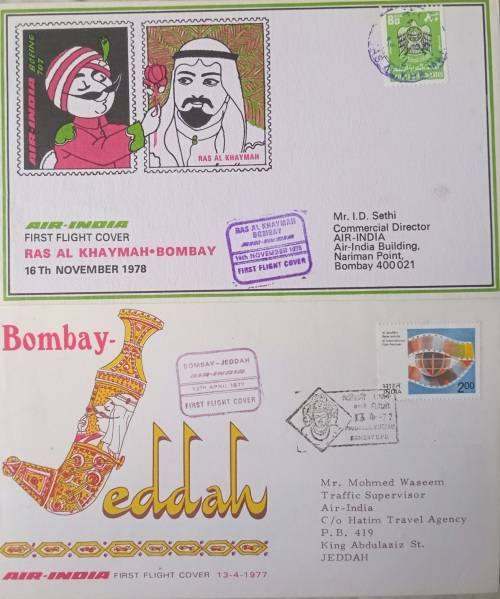 AIR-INDIA BOEING 707
RAS AL KHAYMAH
AIR-INDIA
FIRST FLIGHT COVER
RAS AL KHAYMAH•BOMBAY
16 Th NOVEMBER 1978
RAS AL KHAYMAH
BOMBAY
AIR-INDIA
16th NOVEMBER 1978
FIRST FLIGHT COVER
Mr. I.D. Sethi
Commercial Director
AIR-INDIA
Air-India Building,
Nariman Point,
Bombay 400 021
Bombay-
Jeddah
BOMBAY-JEDDAH
AIR-INDIA
13TH APRIL 1977
FIRST FLIGHT COVER
13 4 -77
भारत INDIA
2.00
Mr. Mohmed Waseem
Traffic Supervisor
Air-India
C/o Hatim Travel Agency
P.B. 419
King Abdulaziz St.
JEDDAH
AIR-INDIA FIRST FLIGHT COVER 13-4-1977